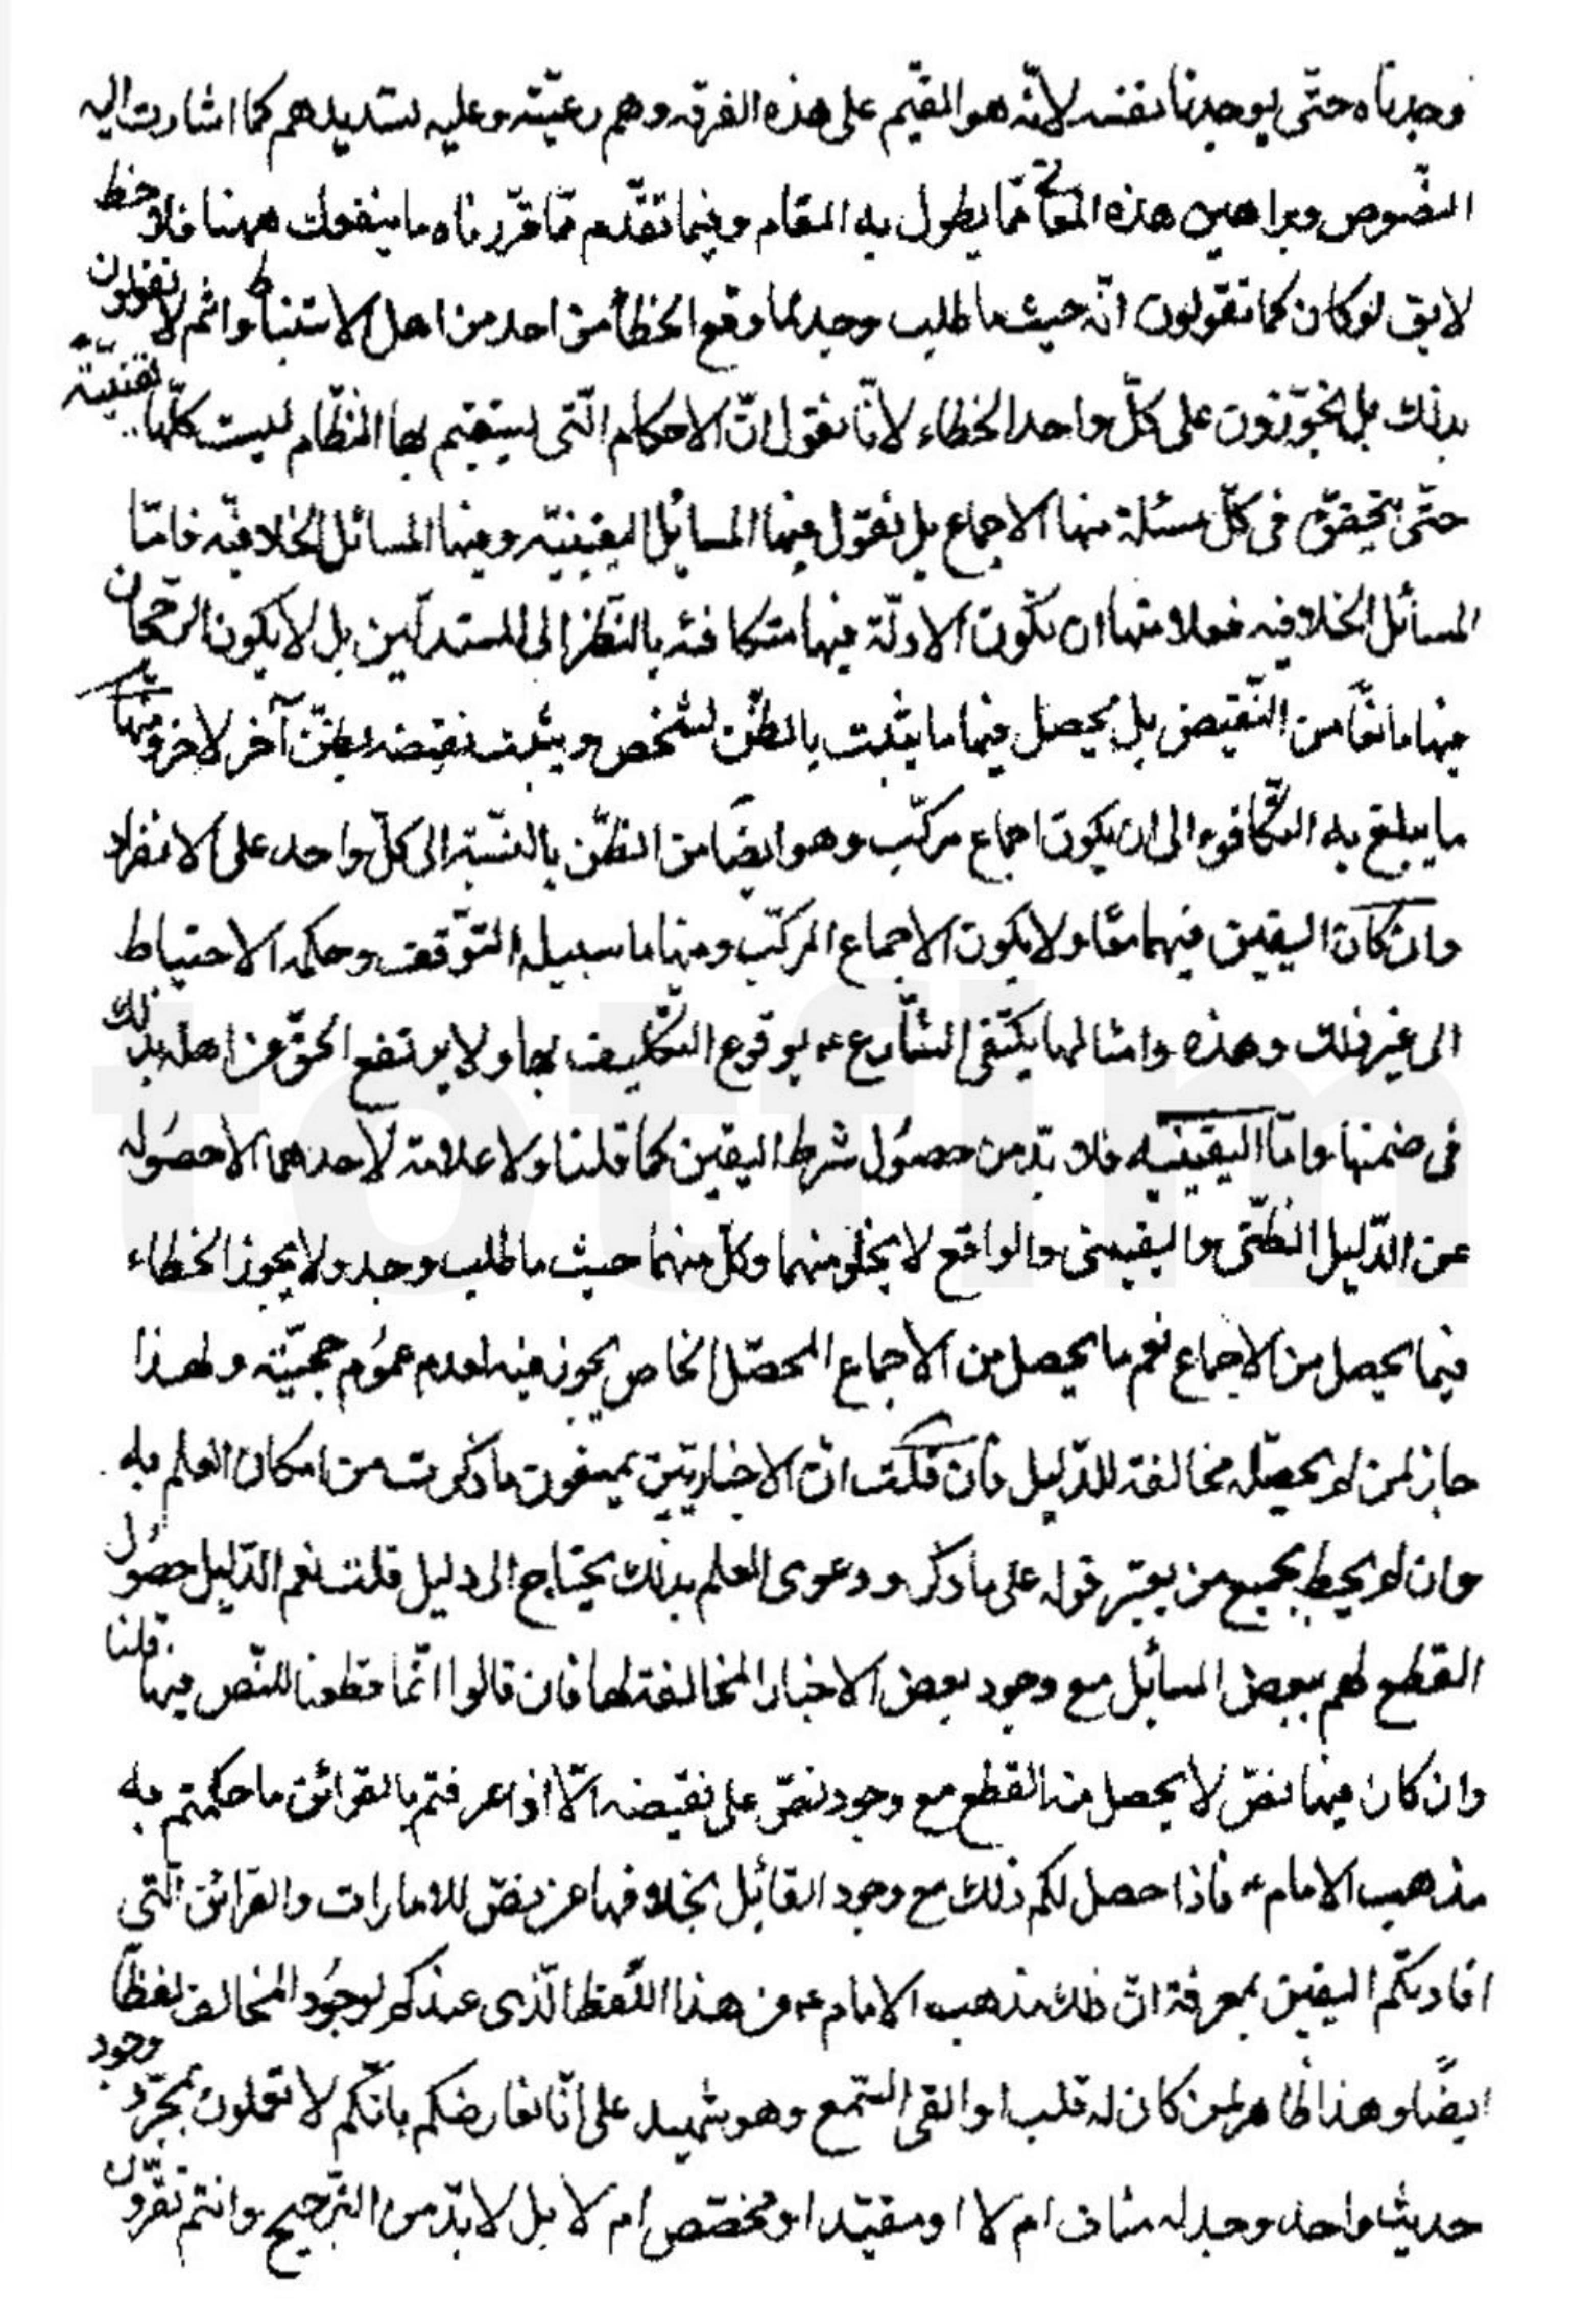 وجدناه حتّى يوجدنا نفسه لانّه هو القيّم على هذه الفرقه وهم رعيّته وعليه تسديدهم كما اشارت اليه
النّصوص وبراهين هذه المقا ممّا يطول به المقام وفيما تقدّم ممّا قرّرناه ما ينفعك ههنا فلاحظ
لايق لو كان كما تقولون انّه حيث ما طلب وجد لما وقع الخطأ من احد من اهل الاستنباط وانتم لا تقولون
بذلك بل تجوّزون على كلّ واحد الخطاء لانّا نقول انّ الاحكام الّتى يستقيم بها النّظام ليست كلّها يقينيّة
حتّى يتحقّق فى كلّ مسئلة منها الاجماع بل نقول فيها المسايل اليقينيّه وفيها المسائل الخلافيّه فامّا
المسائل الخلافيه فعلامتها ان تكون الادلّة فيها متكافئه بالنّظر الى المستدلّين بل لا يكون الرّجحان
فيها مانعًا من النّقيض بل يحصل فيها ما يثبت بالظّن لشخص ويثبت نقيضه بظنّ آخر لاخر ومنها
ما يبلغ به التّكافوء الى ان يكون اجماع مركّب وهو ايضًا من الظّن بالنّسبة الى كلّ واحد على الانفراد
وان كان اليقين فيهما معًا ولا يكون الاجماع المركّب ومنها ما سبيله التّوقف وحكمه الاحتياط
الى غير ذلك وهذه وامثالها يكتفى الشّارع ع بوقوع التّكليف بها ولا يرتفع الحقّ عن اهله بذلك
فى ضمنها وامّا اليقينيه فلا بدّ من حصُول شرط اليقين كما قلنا ولا علامة لاحدهما الا حصُوله
عن الدّليل الظّنّى واليقينى والواقع لا يخلو منهما وكلّ منهما حيث ما طلب وجد ولا يجوز الخطاء
فيما يحصل من الاجماع نعم ما يحصل من الاجماع المحصّل الخاص يجوز فيه لعدم عمُوم حجيّته ولهذا
جاز لمن لم يحصّله مخالفة للدّليل فان قلت انّ الاخباريّين يمنعون ما ذكرت من امكان العلم به
وان لم يحط بجميع من يعتبر قوله على ما ذكر ودعوى العلم بذلك يحتاج الى دليل قلت نعم الدّليل حصُول
القطع لهم ببعض المسائل مع وجود بعض الاخبار المخالفة لها فان قالوا انّما قطعنا للنّص فيها قلنا
وان كان فيها نصّ لا يحصل منه القطع مع وجود نصّ على نقيضه الّا اذا عرفتم بالقرائن ما حكمتم به
مذهب الامام ع فاذا حصل لكم ذلك مع وجود القائل بخلافها عن نصّ للامارات والقرائن الّتى
افادتكم اليقين بمعرفة انّ ذلك مذهب الامام ع من هذا اللّفظ الّذى عندكم لوجُود المخالف لفظًا
ايضًا وهذا ظاهر لمن كان له قلب او القى السّمع وهو شهيد على انّا نعارضكم بانّكم لا تعملون بمجرّد وجود
حديث واحد وجد له مناف ام لا او مقيّد او مخصّص ام لا بل لا بدّ من التّرجيح وانتم تقرّون